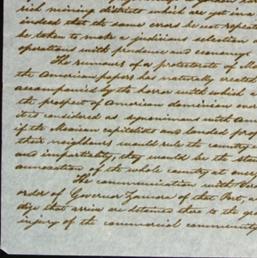 rich mining districts which we got in a
indeed that the same errors be not repeate
be taken to make a judicious selection
operations with prudence and economy
The rumours of a protectorate of Me
the American papers has naturally created
accompanied by the horror with which a
the prospect of American dominion over
it is considered as synonimous with Ann
if the Mexican capitalists and landed prop
their neighbours would rule the country w
and impartiality, they would be the
annexation of the whole country at once
The communication with Vera
order of Governor Zamora of that Port, a
digo that arrive are detained there to the gr
injury of the commercial community